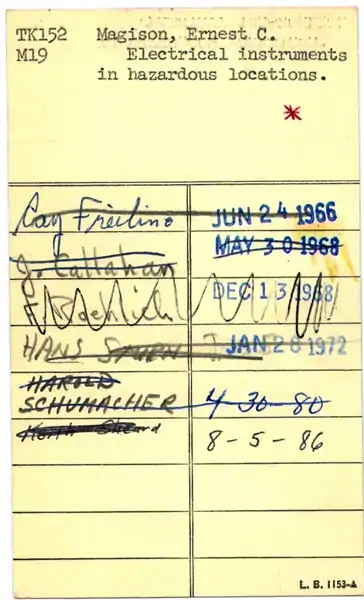 TK152 Magison, Ernest C.
M19 Electrical instruments
in hazardous locations.
*
Ray Freilino JUN 24 1966
J. Callahan MAY 30 1968
DEC 13 1968
HANS JAN 28 1972
HAROLD
SCHUMACHER 4-30-80
Keith Sheard 8-5-86
L. B. 1153-A